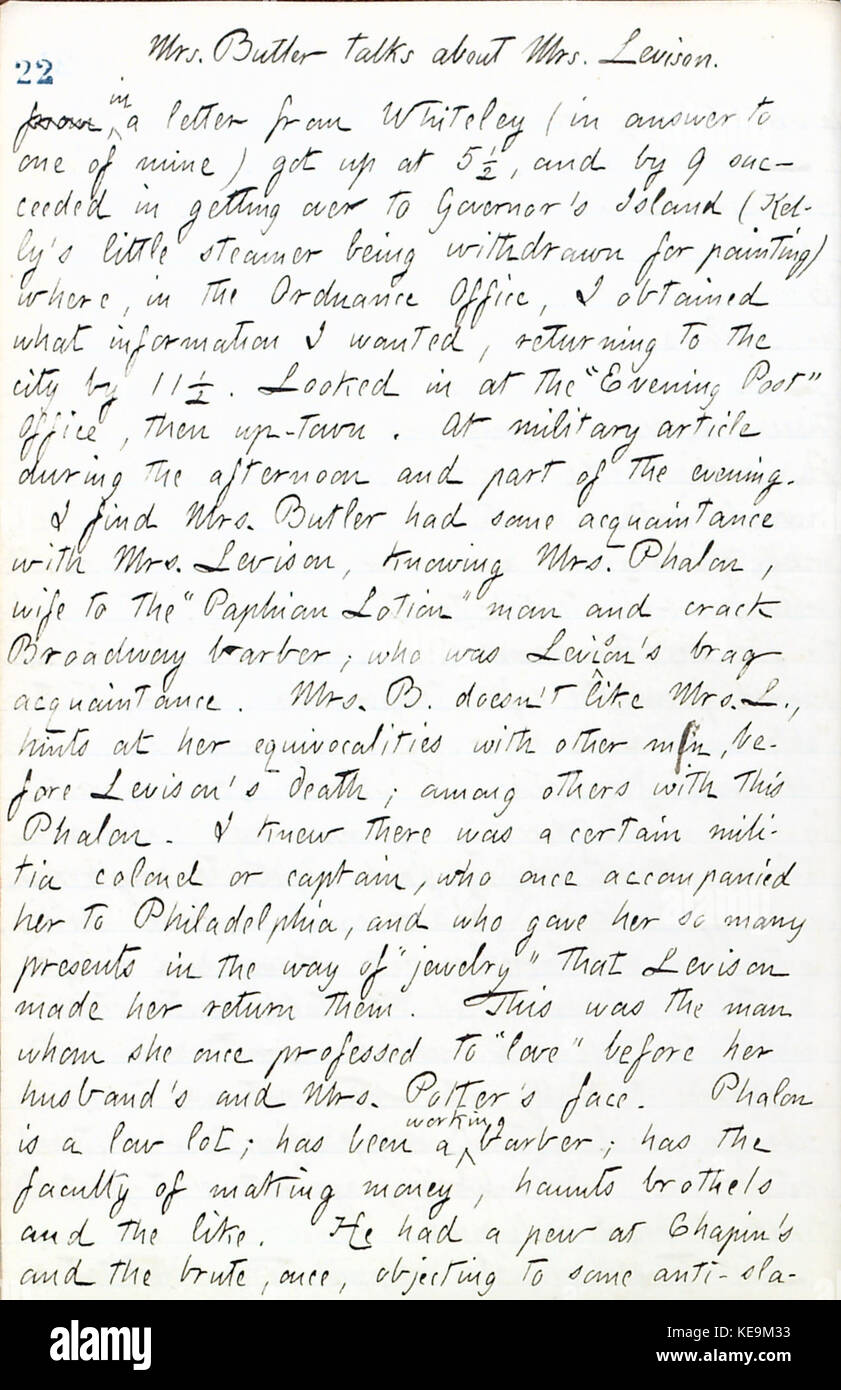 Mrs. Butler talks about Mrs. Levison.
22
from in a letter from Whiteley (in answer to
one of mine) got up at 5 1/2, and by 9 suc-
ceeded in getting over to Governor's Island (Kel-
ly's little steamer being withdrawn for painting)
where, in the Ordnance Office, I obtained
what information I wanted, returning to the
city by 11 1/2. Looked in at the "Evening Post"
Office, then up-town. At military article
during the afternoon and part of the evening.
I find Mrs. Butler had some acquaintance
with Mrs. Levison, knowing Mrs. Phalon,
wife to the "Paphian Lotion" man and crack
Broadway barber; who was Levison's brag
acquaintance. Mrs. B. doesn't like Mrs. L.,
hints at her equivocalities with other men, be-
fore Levison's death; among others with this
Phalon. I knew there was a certain mili-
tia colonel or captain, who once accompanied
her to Philadelphia, and who gave her so many
presents in the way of "jewelry" that Levison
made her return them. This was the man
whom she once professed to "love" before her
husband's and Mrs. Potter's face. Phalon
is a low lot; has been a working barber; has the
faculty of making money, haunts brothels
and the like. He had a pew at Chapin's
and the brute, once, objecting to some anti-sla-
alamy
Image ID: KE9M33
www.alamy.com